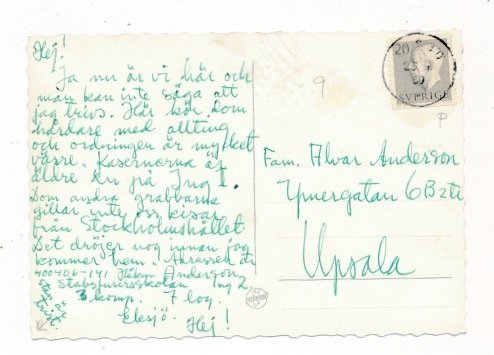 Hej!
Ja nu är vi här och
man kan inte säga att
jag trivs. Här kör dom
hårdare med allting
och ordningen är mycket
värre. Kasernerna är
äldre än på Ing 1.
Dom andra grabbarna
gillar inte oss kisar
från Stockholmshållet
Det dröjer nog innan jag
kommer hem. Adressen är
400406-141 Anderson
Stabsfurirsskolan Ing 2,
3 komp. 7 log.
Eksjö.
stan är
trist.
Hej!
20
SVERIGE
9
P
Fam. Alvar Anderson
Ymergatan 6B 2tr
Upsala